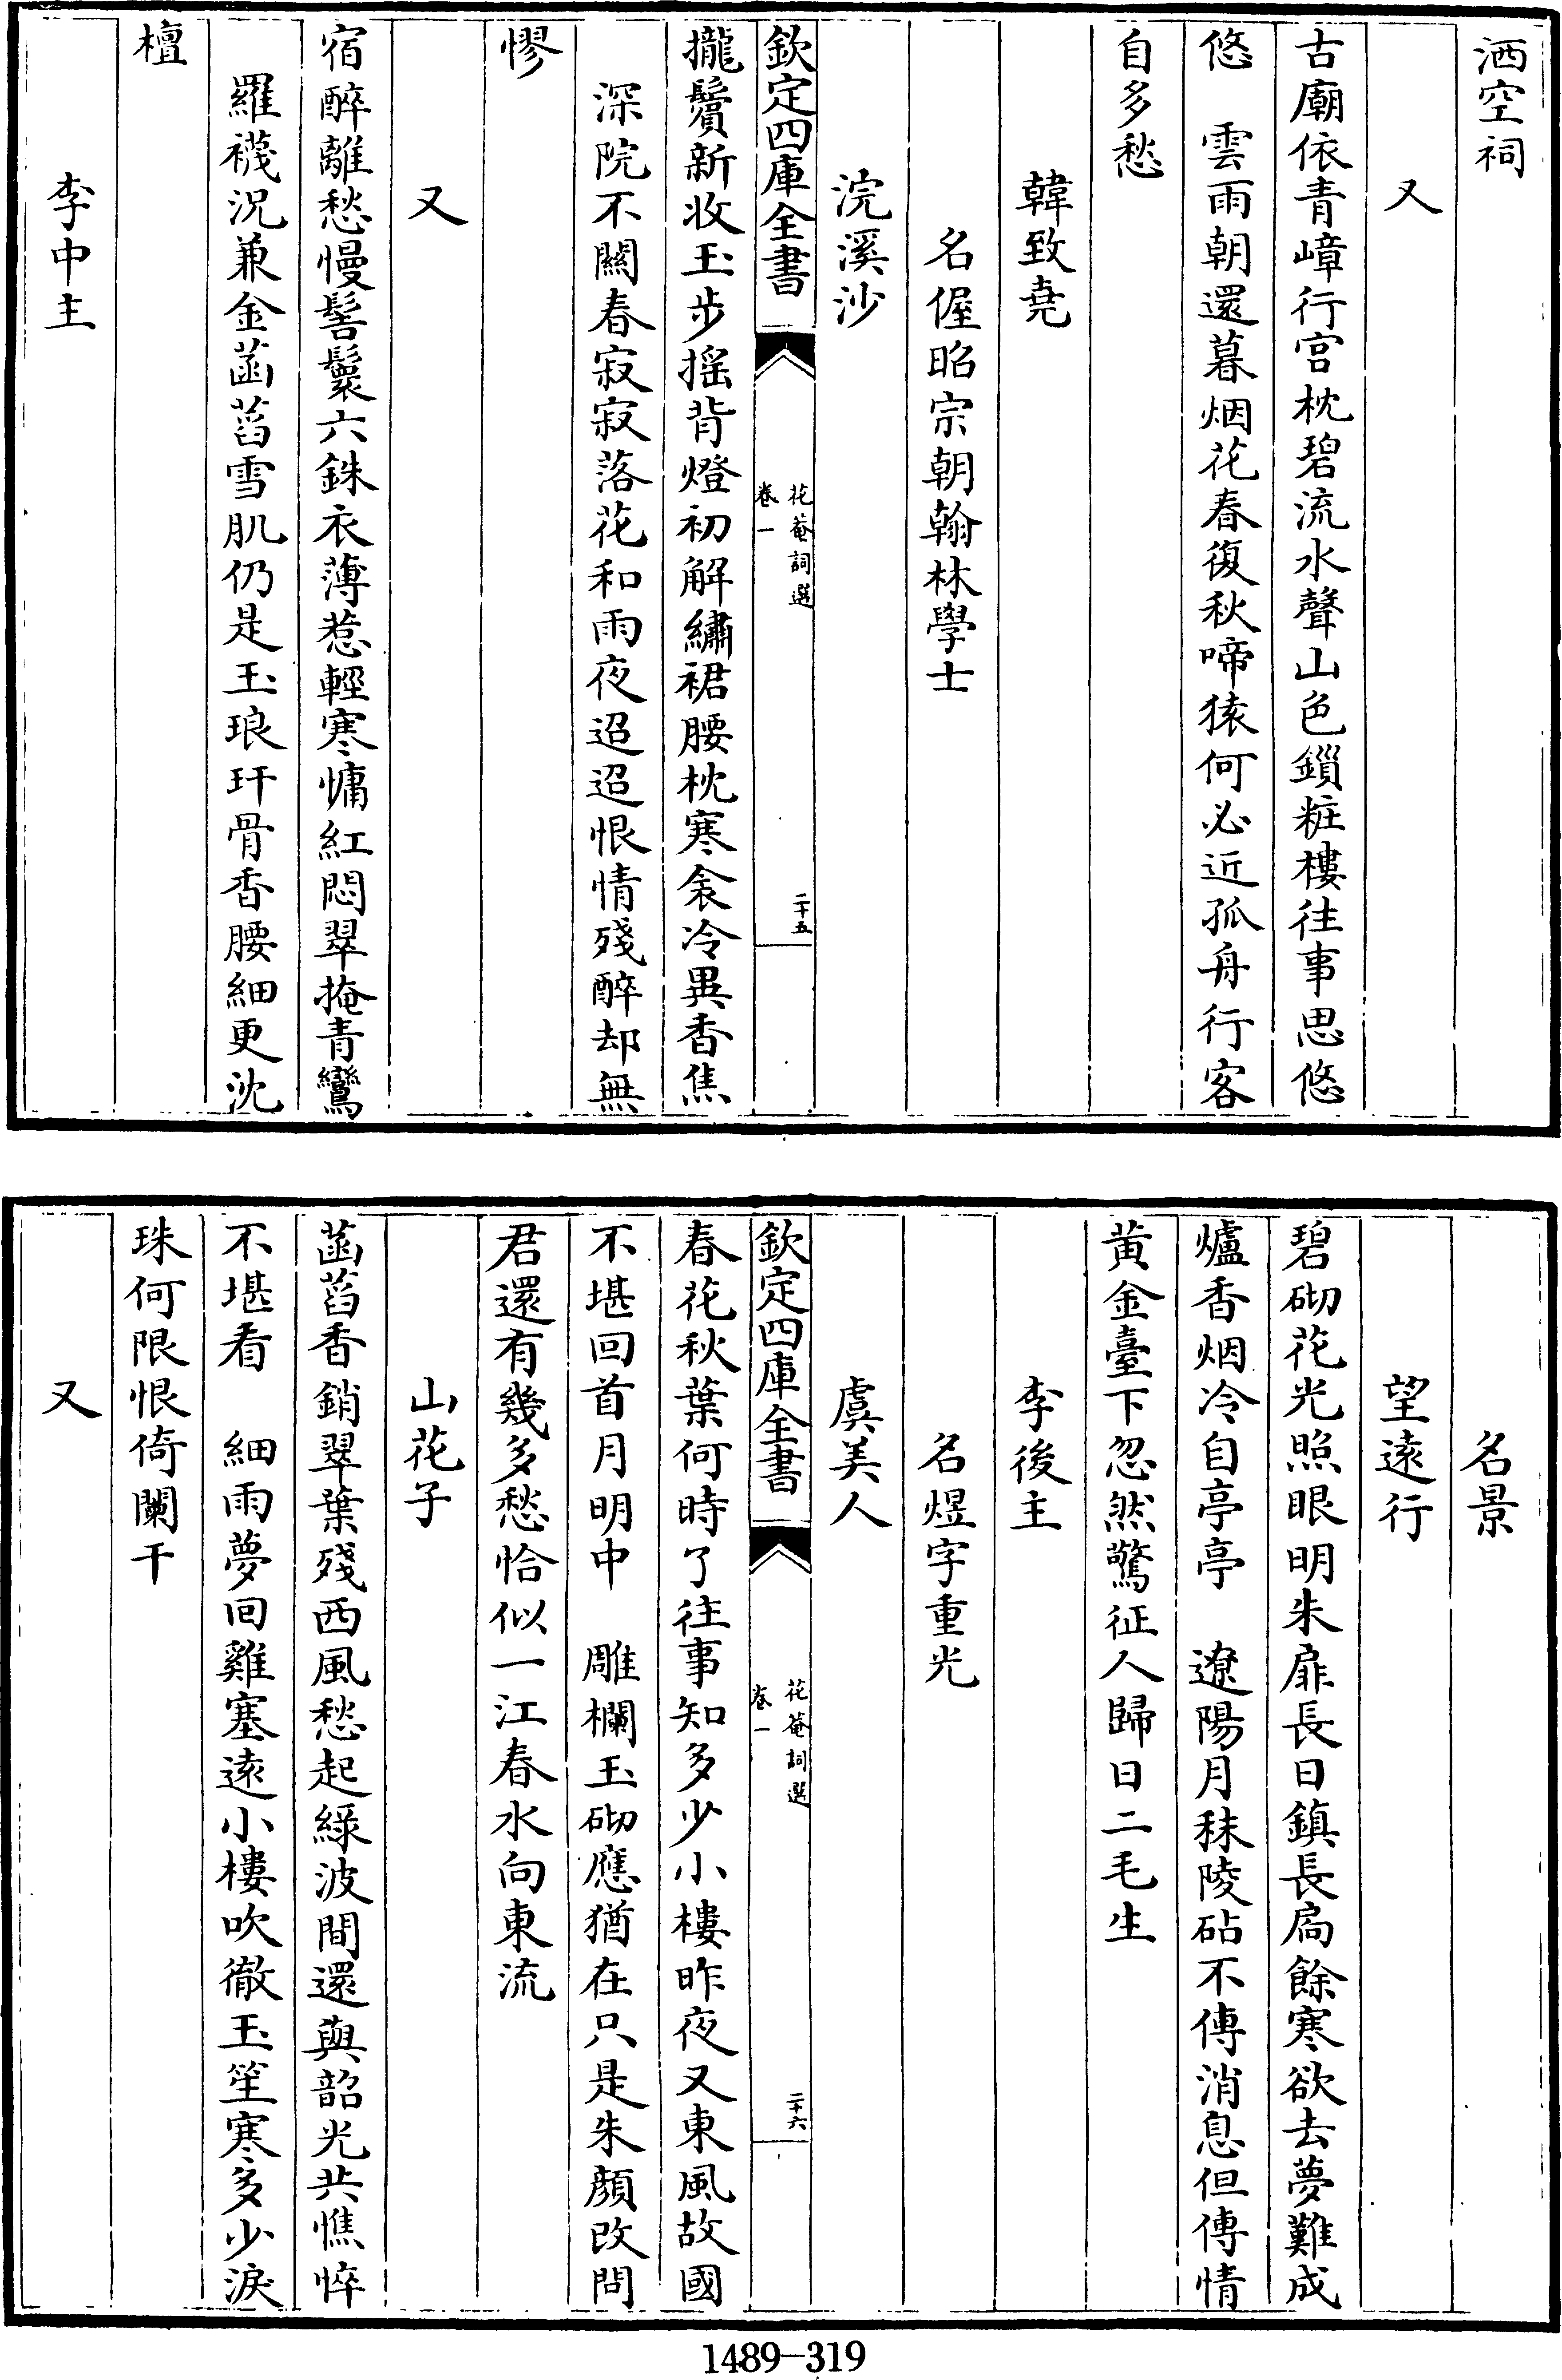 洒空祠
又
古廟依青嶂行宫枕碧流水聲山色鎻粧樓往事思悠
悠　雲雨朝還暮烟花春復秋啼猿何必近孤舟行客
自多愁
韓致堯
名偓昭宗朝翰林學士
浣溪沙
欽定四庫全書
花菴詞選
卷一
二十五
攏鬢新收玉步摇背燈初解繡裙腰枕寒衾冷異香焦
深院不關春寂寂落花和雨夜迢迢恨情殘醉却無
憀
又
宿醉離愁慢髻鬟六銖衣薄惹輕寒慵紅悶翠掩青鸞
羅襪况兼金菡萏雪肌仍是玉琅玕骨香腰細更沈
檀
李中主
名景
望逺行
碧砌花光照眼明朱扉長日鎮長扃餘寒欲去夢難成
爐香烟冷自亭亭　遼陽月秣陵砧不傳消息但傳情
黄金臺下忽然驚征人歸日二毛生
李後主
名煜字重光
虞美人
欽定四庫全書
花菴詞選
卷一
二十六
春花秋葉何時了往事知多少小樓昨夜又東風故國
不堪回首月明中　雕欄玉砌應猶在只是朱顔改問
君還有幾多愁恰似一江春水向東流
山花子
菡萏香銷翠葉殘西風愁起緑波間還與韶光共憔悴
不堪看　細雨夢回雞塞逺小樓吹徹玉笙寒多少淚
珠何限恨倚闌干
又
1489-319